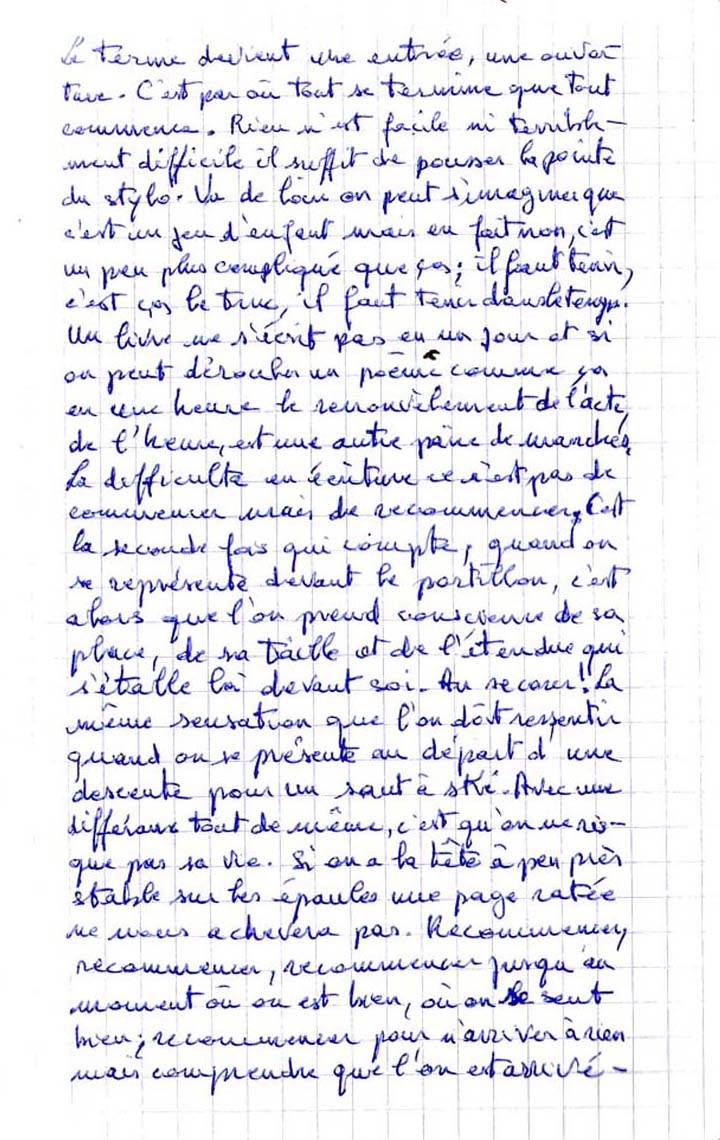 Le terme devient une entrée, une ouver
ture. C'est par où tout se termine que tout
commence. Rien n'est facile ni terrible-
ment difficile il suffit de pousser la pointe
du stylo. Vu de loin on peut s'imaginer que
c'est un jeu d'enfant mais en fait non, c'est
un peu plus compliqué que ça ; il faut tenir,
c'est ça le truc, il faut tenir dans le temps.
Un livre ne s'écrit pas en un jour et si
on peut débouler un poème comme ça
en une heure le renouvèlement de l'acte,
de l'heure, est une autre paire de manches.
La difficulté en écriture ce n'est pas de
commencer mais de recommencer. C'est
la seconde fois qui compte, quand on
se représente devant le portillon, c'est
alors que l'on prend conscience de sa
place, de sa taille et de l'étendue qui
s'étalle là devant soi. Au secours! La
même sensation que l'on doit ressentir
quand on se présente au départ d'une
descente pour un saut à ski. Avec une
différence tout de même, c'est qu'on ne ris-
que pas sa vie. Si on a la tête à peu près
stable sur les épaules une page ratée
ne nous achevera pas. Recommencer,
recommencer, recommencer jusqu'au
moment où on est bien, où on se sent
bien ; recommencer pour n'arriver à rien
mais comprendre que l'on est arrivé -